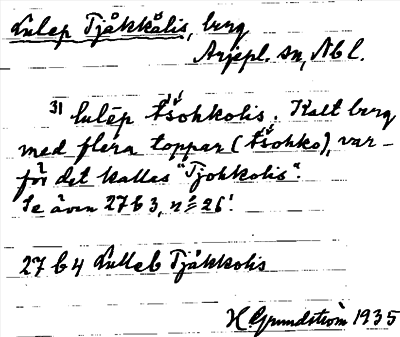 Lulep Tjåkkålis, berg
Arjepl. sn, Nbl.
31 lulēp tšohkolis. Kalt berg
med flera toppar (tšohko), var-
för det kallas "Tjohkolis".
Se även 27b3, nº 26!
27b4 Lulleb Tjåkkolis
H Grundström 1935